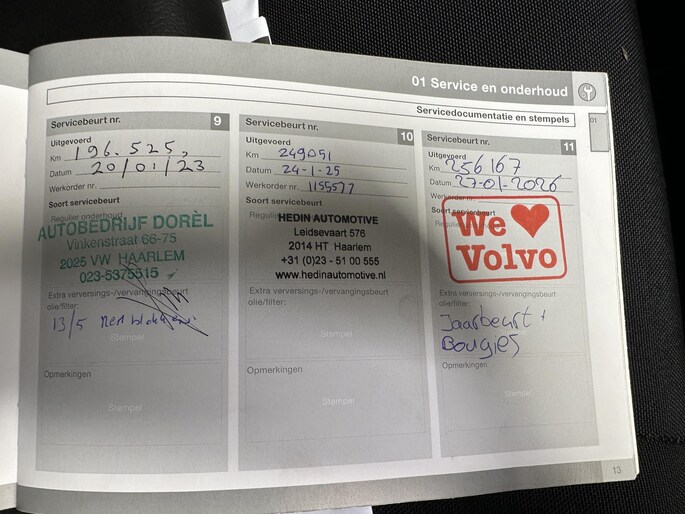 01 Service en onderhoud
Servicedocumentatie en stempels
01
Servicebeurt nr. 9
Uitgevoerd
Km 196.525,
Datum 20/01/23
Werkorder nr.
Soort servicebeurt
Regulier onderhoud
AUTOBEDRIJF DORÈL
Vinkenstraat 66-75
2025 VW HAARLEM
023-5375515
Extra verversings-/vervangingsbeurt
olie/filter:
13/5
Stempel
Opmerkingen
Stempel
Servicebeurt nr. 10
Uitgevoerd
Km 249051
Datum 24-1-25
Werkorder nr. 1155577
Soort servicebeurt
HEDIN AUTOMOTIVE
Leidsevaart 576
2014 HT Haarlem
+31 (0)23 - 51 00 555
www.hedinautomotive.nl
Extra verversings-/vervangingsbeurt
olie/filter:
Stempel
Opmerkingen
Stempel
Servicebeurt nr. 11
Uitgevoerd
Km 256167
Datum 27-01-2026
Werkorder nr.
Soort servicebeurt
We ♥
Volvo
Extra verversings-/vervangingsbeurt
olie/filter:
Jaarbeurt +
Bougies
Opmerkingen
Stempel
13